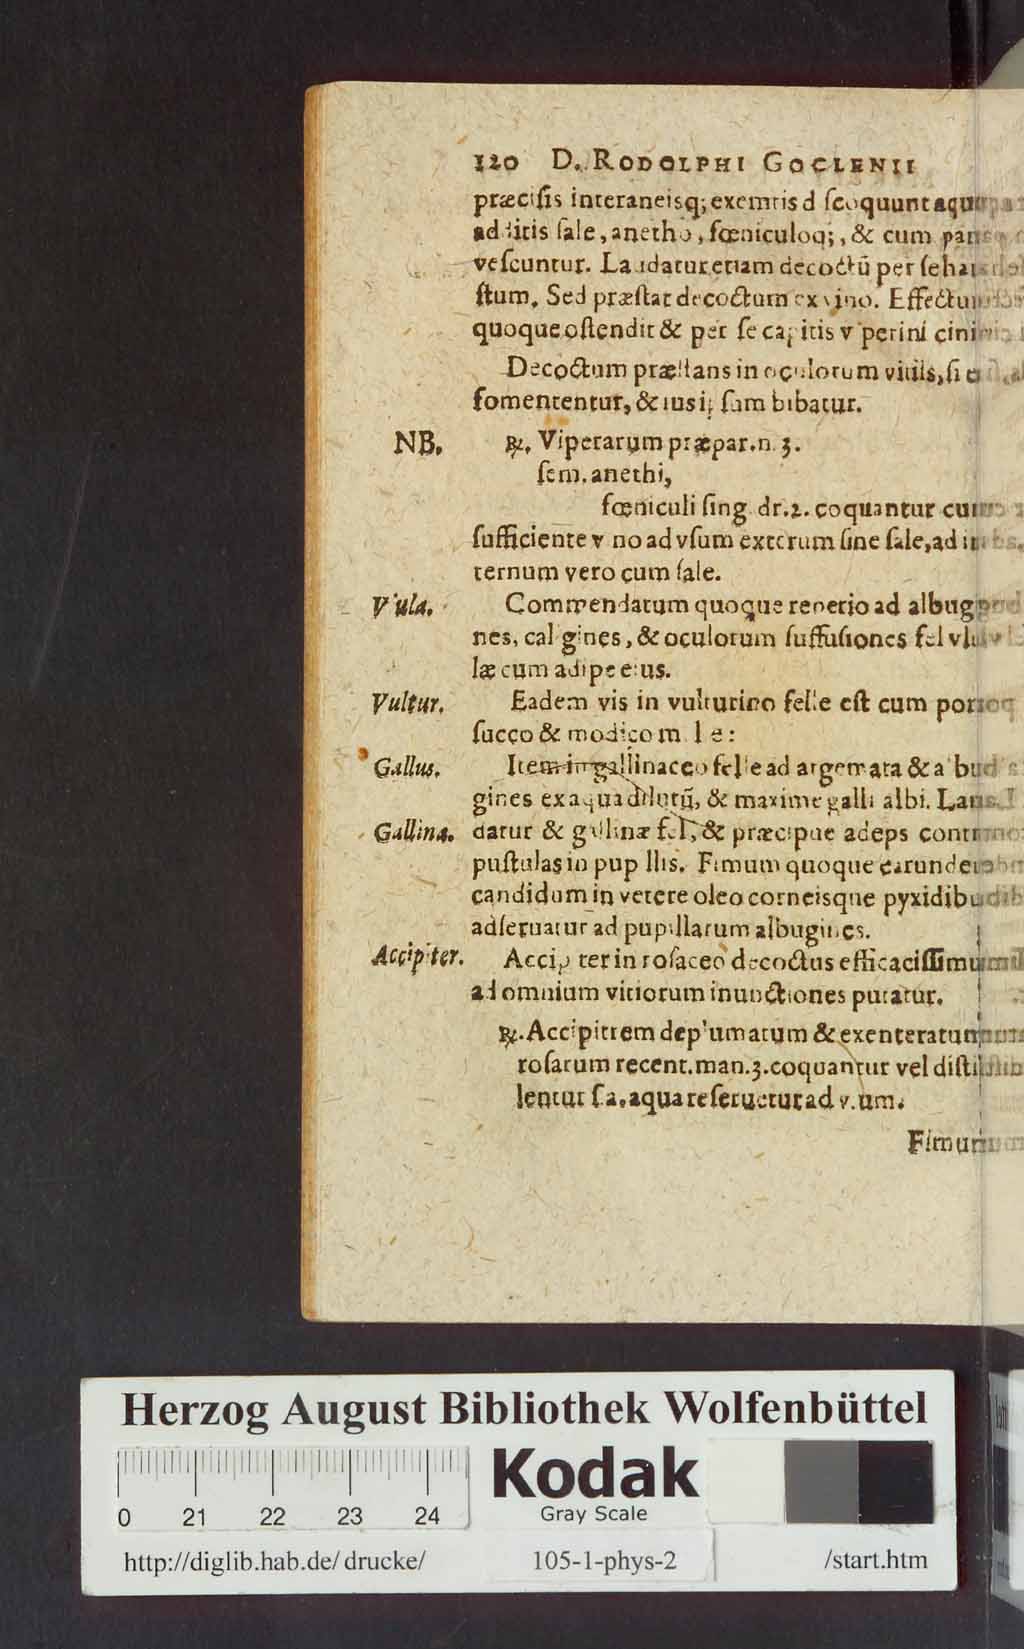 120 D. RODOLPHI GOCLENII
præcisis interaneisq; exemtis d scoquunt aqua
additis sale, anetho, fœniculoq;, & cum pane
vescuntur. Laudatur etiam decoctū per se ha
stum. Sed præstat decoctum ex vino. Effectum
quoque ostendit & per se capitis v perini cini
Decoctum præstans in oculorum vitiis, si
fomententur, & ius ip sum bibatur.
NB. ℞. Viperarum præpar. n. 3.
sem. anethi,
fœniculi sing. dr. 2. coquantur cum
sufficiente v no ad vsum externum sine sale, ad in
ternum vero cum sale.
Vlula. Commendatum quoque reperio ad albugi
nes, cal gines, & oculorum suffusiones fel vlu
læ cum adipe eius.
Vultur. Eadem vis in vulturino felle est cum porro
succo & modico m l e:
Gallus. Item in gallinaceo felle ad argemata & albu
gines ex aqua dilutū, & maxime galli albi. Lau
Gallina. datur & gallinæ fel, & præcipue adeps contra
pustulas in pup llis. Fimum quoque earundem
candidum in vetere oleo corneisque pyxidibus
adseruatur ad pupillarum albugines.
Accipiter. Accip ter in rosaceo decoctus efficacissimum
ad omnium vitiorum inunctiones putatur.
℞. Accipitrem deplumatum & exenteratum
rosarum recent. man. 3. coquantur vel disti
lentur s. a. aqua reseruetur ad v. um.
Fimum
Herzog August Bibliothek Wolfenbüttel
0 21 22 23 24
Kodak
Gray Scale
http://diglib.hab.de/drucke/ 105-1-phys-2 /start.htm